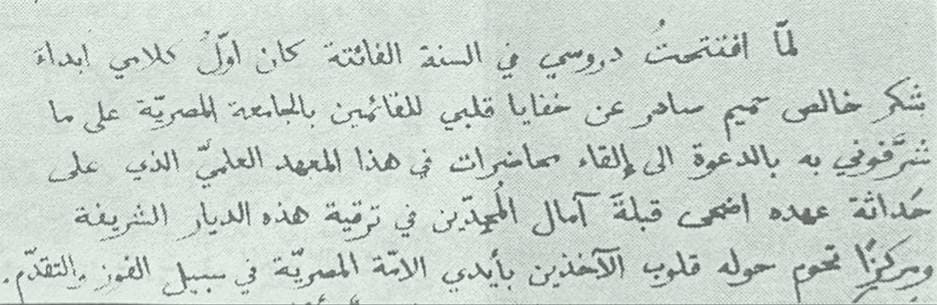 لمّا افتتحتُ دروسي في السنة الفائتة كان اوّلُ كلامي ابداءَ
شكر خالص صميم صادر عن خفايا قلبي للقائمين بالجامعة المصريّة على ما
شرَّفوني به بالدعوة الى إلقاء محاضرات في هذا المعهد العلميّ الذي على
حَداثة عهده اضحى قبلةَ آمال المُجدّين في ترقية هذه الديار الشريفة
ومركزًا تحوم حوله قلوب الآخذين بأيدي الامّة المصريّة في سبيل الفوز والتقدّم.